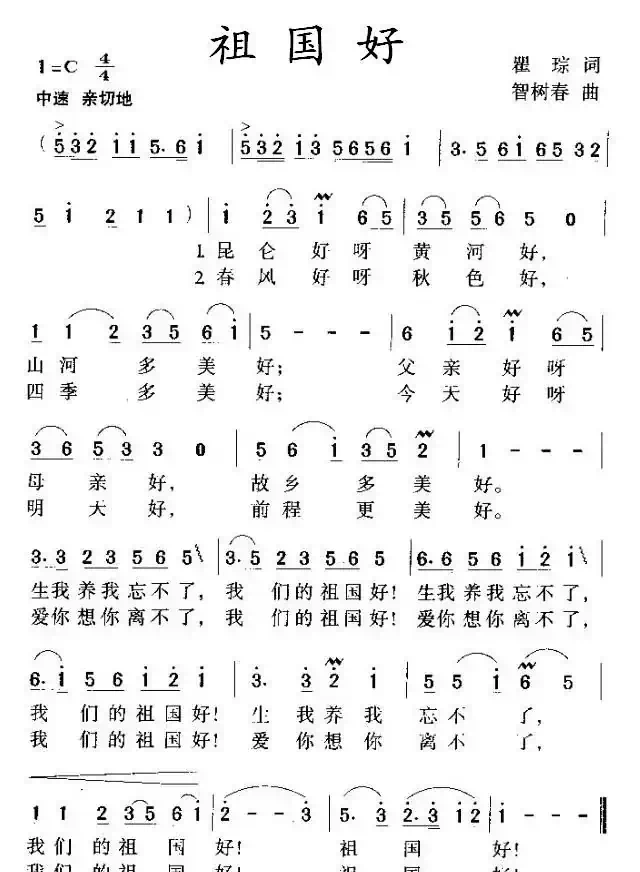 祖 国 好
1=C 4/4
瞿 琮 词
中速 亲切地
智树春 曲
( 5 3 2 1 1 5. 6 1 | 5 3 2 1 3 5 6 5 6 1 | 3. 5 6 1 6 5 3 2
5 1 2 1 1 ) | 1 2 3 1 6 5 | 3 5 5 6 5 0
1. 昆 仑 好 呀 黄 河 好,
2. 春 风 好 呀 秋 色 好,
1 1 2 3 5 6 1 | 5 - - - | 6 1 2 1 6 5
山 河 多 美 好; 父 亲 好 呀
四 季 多 美 好; 今 天 好 呀
3 6 5 3 3 0 | 5 6 1 3 5 2 | 1 - - -
母 亲 好, 故 乡 多 美 好。
明 天 好, 前 程 更 美 好。
3. 3 2 3 5 6 5 | 3. 5 2 3 5 6 5 | 6. 6 5 6 1 2 1
生我 养我 忘不了, 我 们的 祖国好! 生我 养我 忘不了,
爱你 想你 离不了, 我 们的 祖国好! 爱你 想你 离不了,
6. 1 5 6 1 2 1 | 3. 3 2 1 | 5 5 1 6 5
我 们的 祖国好! 生 我 养 我 忘 不 了,
我 们的 祖国好! 爱 你 想 你 离 不 了,
1 1 2 3 5 6 1 | 2 - - 3 | 5. 3 2 3 1 2 | 1 - - -
我们的 祖 国 好! 祖 国 好!
我们的 祖 国 好! 祖 国 好!